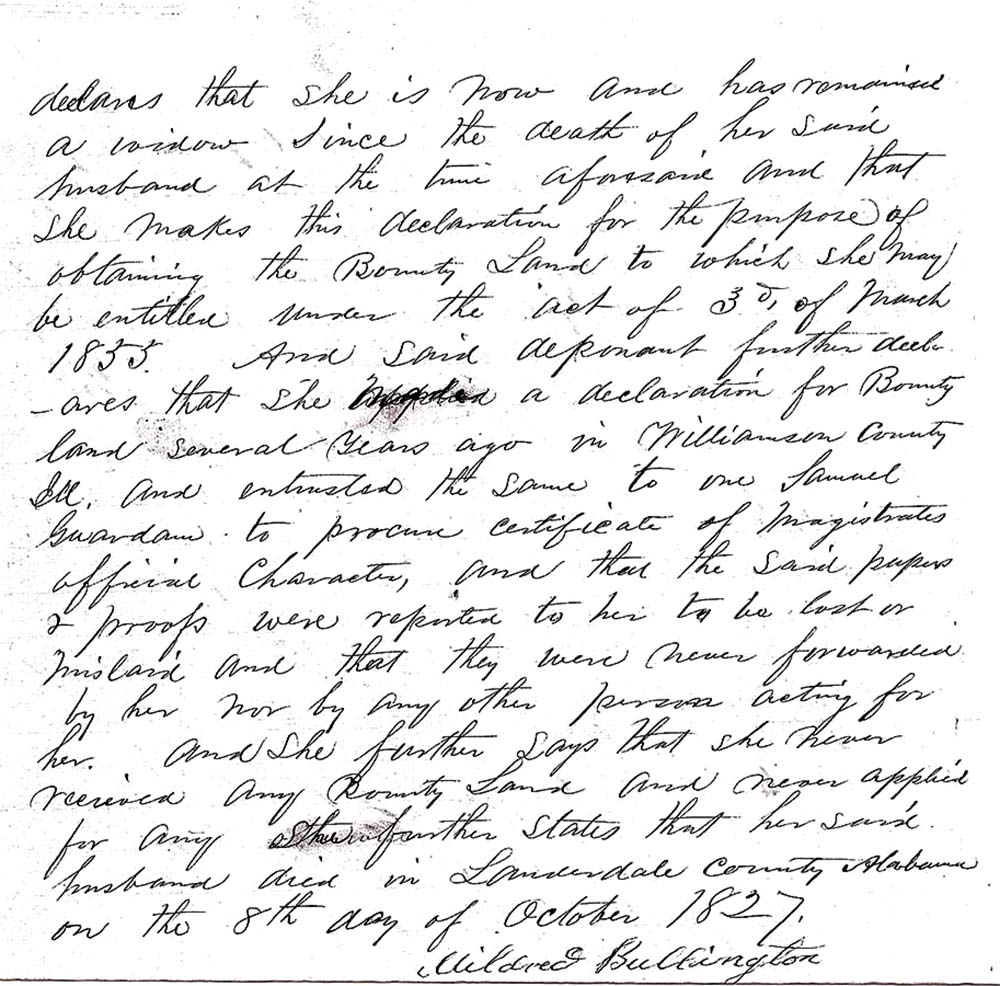 declares that she is now and has remained
a widow Since the death of her said
husband at the time aforesaid and that
She makes this declaration for the purpose of
obtaining the Bounty Land to which she may
be entitled under the act of 3d, of March
1855. And said deponant further decla
-ares that she a declaration for Bounty
land several Years ago in Williamson County
Ill. and entrusted the same to one Samuel
to procure certificate of Magistrates
official Character, and that the said papers
& proofs were reported to her to be lost or
mislaid and that they were never forwarded
by her nor by any other person acting for
her. and She further says that she never
recieved any Bounty Land and never applied
for any further States that her said
husband died in Lauderdale County Alabama
on the 8th day of October 1827.
Mildred Bullington